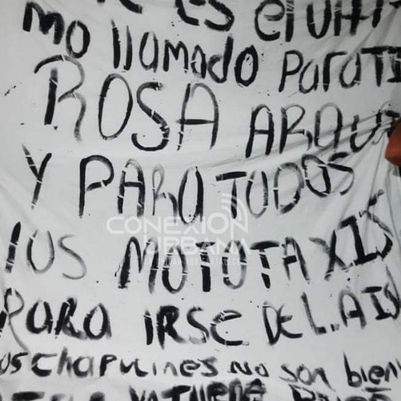 ES el Ulti
mo llamado PARA TI
ROSA ARQU
Y PARA TODOS
los MOTOTAXIS
PARA IRSE DE L. AIS
os chapulines No son bien
CONEXIÓN
URBANA